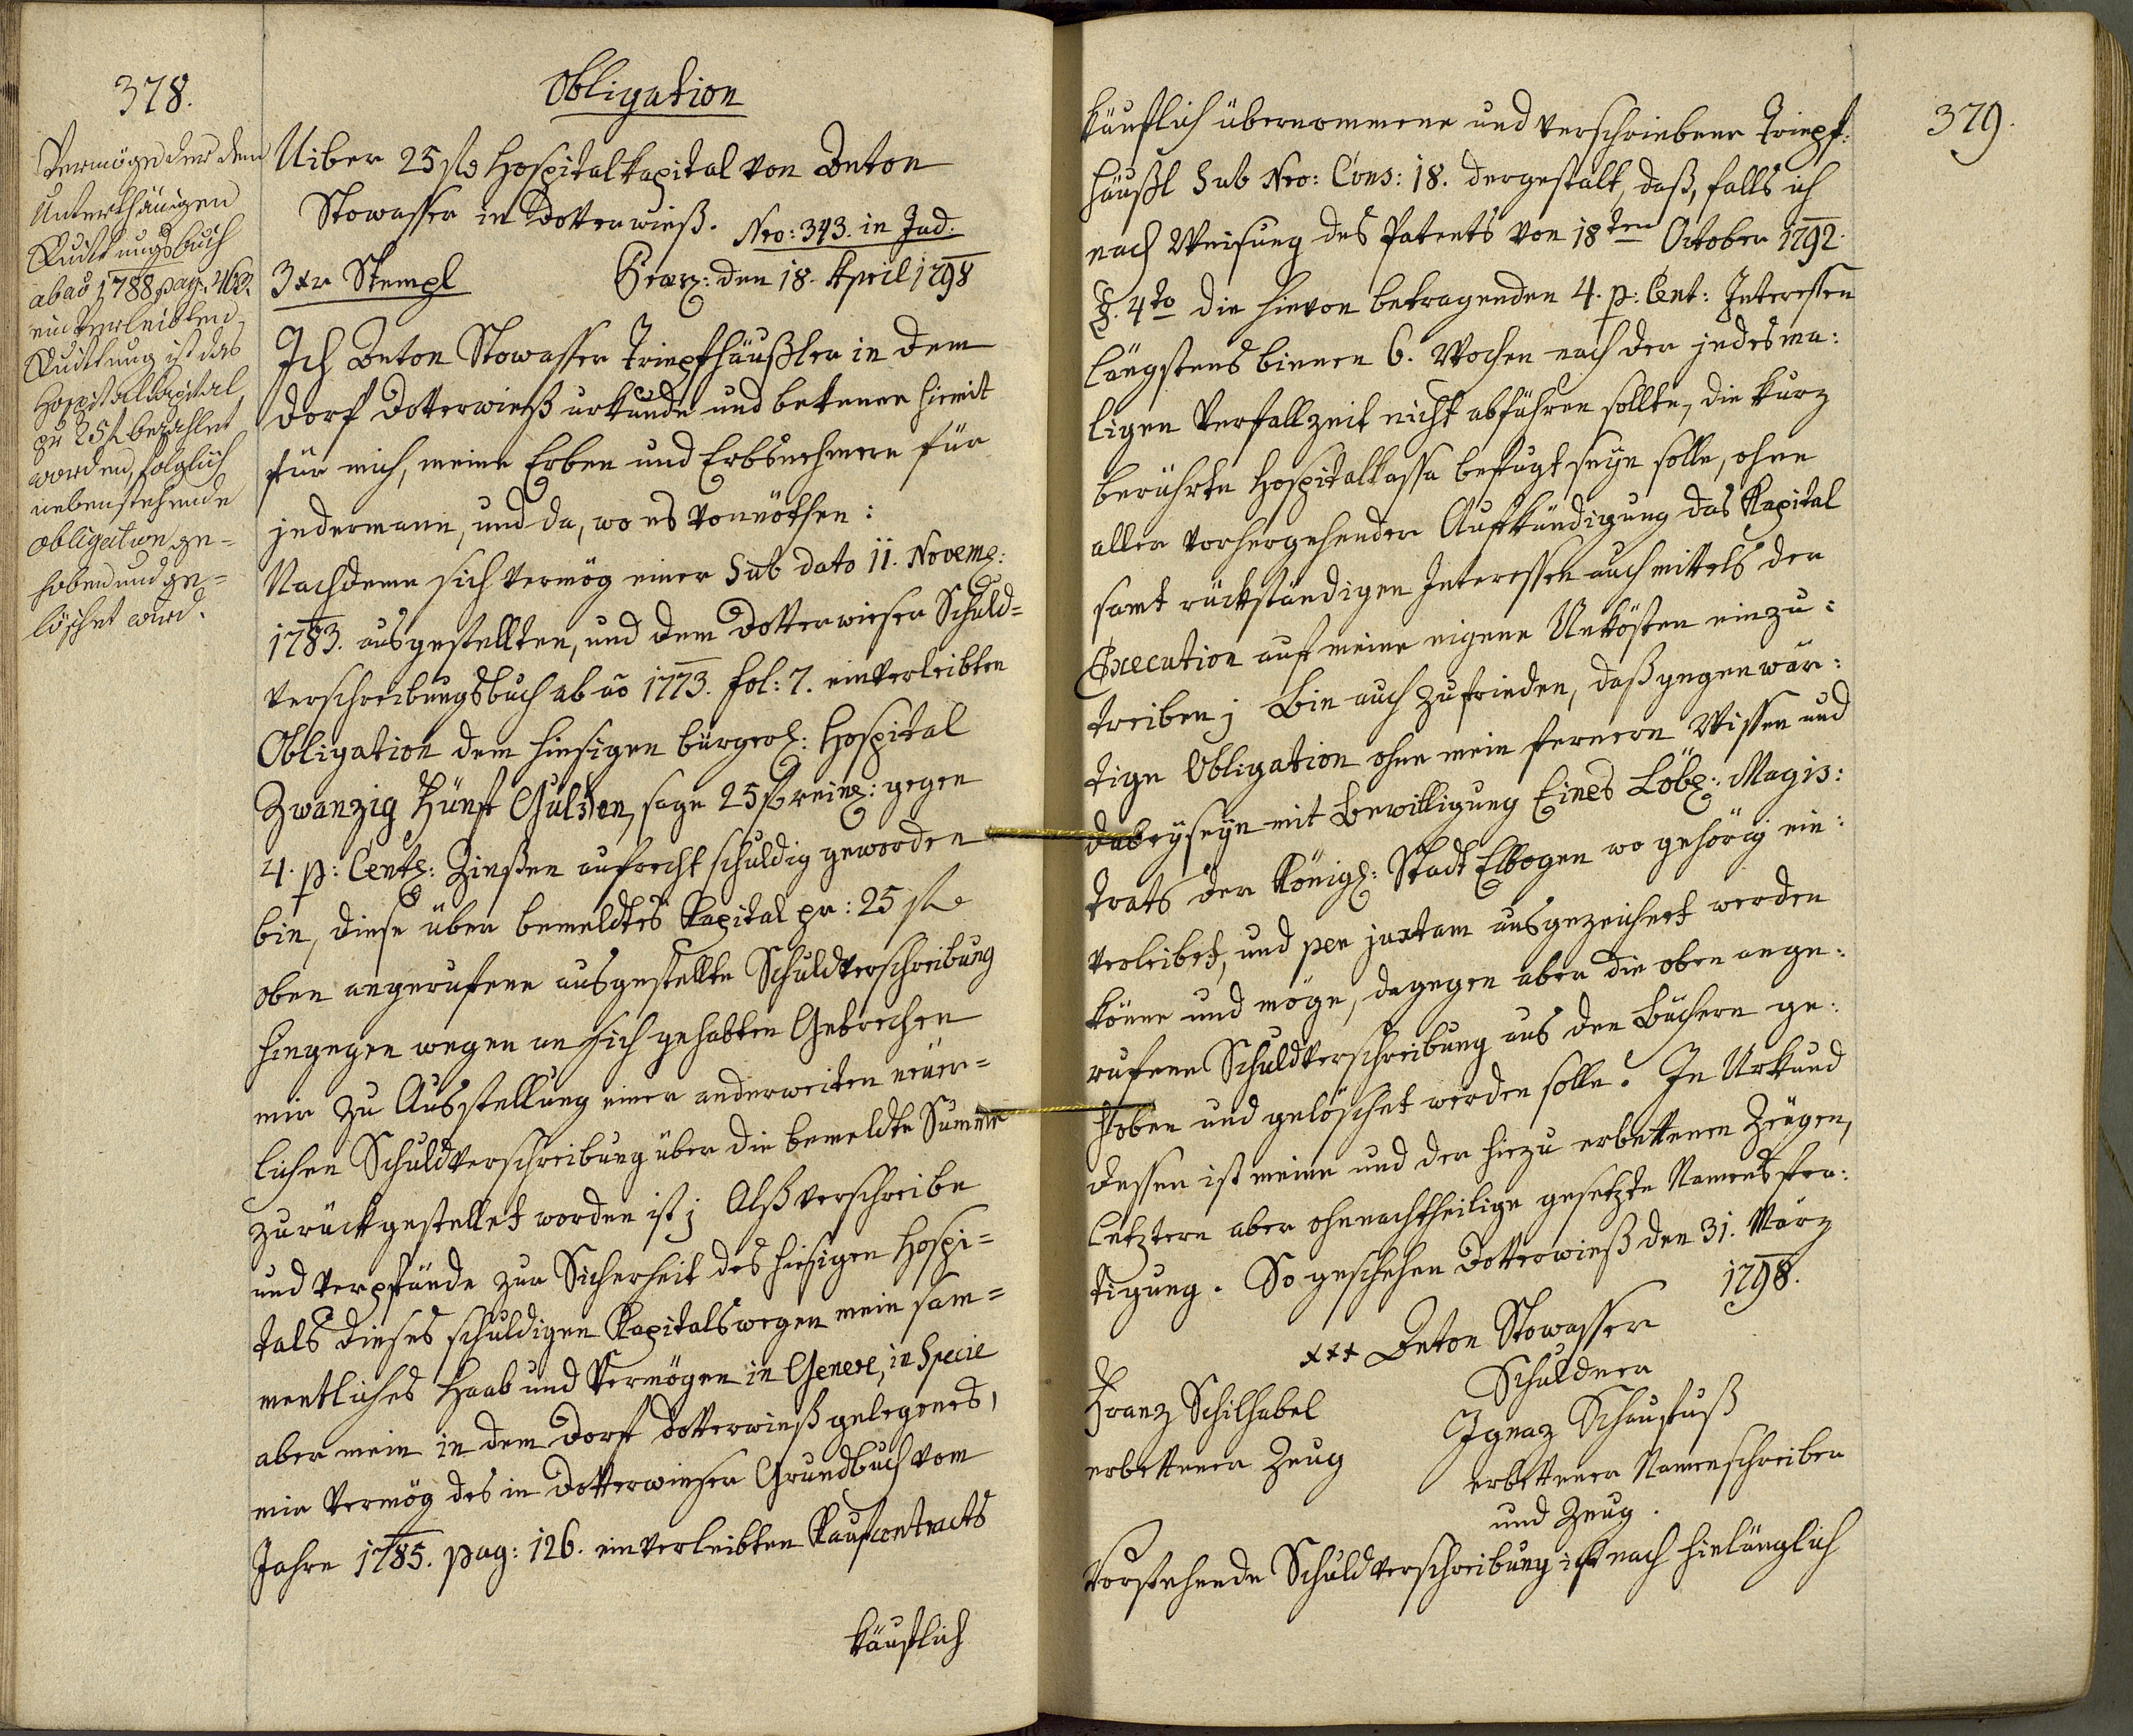 378.
Obligation
Uiber 25 f Hospitalkapital von Anton
Stowasser in Dotterwieß. Nro: 343. in Jud:
3 xr Stempl Praes: den 18. April 1798
Vermög des dem
Unterthänigen
Quittungsbuch
ab aõ 1788 pag: 463.
einverleibten
Quittung ist das
Hospitalkapital
zu 25 f bezahlet
worden, folglich
nebenstehende
obligation ge=
hoben und ge=
löschet wird.
Ich Anton Stowasser Triepfhäußler in dem
Dorf Dotterwieß urkunde und bekenne hiemit
für mich, meine Erben und Erbsnehmern für
jedermann, und da, wo es vonnöthen:
Nachdeme sich vermög einer Sub dato 11. Novemb:
1783. ausgestellten, und dem Dotterwieser Schuld=
verschreibungsbuch ab aõ 1773. fol: 7. einverleibten
Obligation dem hiesigen bürgerl: Hospital
Zwanzig Fünf Gulden, sage 25 f reinl: gegen
4. p: Cento: Zinßen aufrecht schuldig geworden
bin, diese über bemeldtes Kapital pr: 25 f
oben angerufene ausgestellte Schuldverschreibung
hingegen wegen an sich gehabten Gebrechen
mir zu Ausstellung einer anderweiten neuer=
lichen Schuldverschreibung über die bemeldte Summe
zurückgestellet worden ist; Alß verschreibe
und verpfände zur Sicherheit des hiesigen Hospi=
tals dieses schuldigen Kapitals wegen mein sam=
mentliches Haab und Vermögen in Genere, in Specie
aber mein in dem Dorf Dotterwieß gelegenes,
mir vermög des in Dotterwieser Grundbuch vom
Jahre 1785. pag: 126. einverleibten Kaufcontracts
käuflich
379.
käuflich übernommene und verschriebene Triepf:
häußl Sub Nro: Cons: 18. dergestalt, daß, falls ich
nach Weisung des Patents von 18ten October 1792.
§. 4to die hievon betragenden 4. p: Cent: Interessen
längstens binnen 6. Wochen nach der jedesma:
ligen Verfallzeit nicht abführen sollte, die kurz
berührte Hospitalkassa befugt seyn solle, ohne
aller vorhergehender Aufkündigung das Kapital
samt rückständigen Interessen auch mittels der
Execution auf meine eigene Unkösten einzu:
treiben; Bin auch zufrieden, daß gegenwär:
tige Obligation ohne mein fernern Wissen und
dabeyseyn mit Bewilligung Eines Löbl: Magis:
trats der Königl: Stadt Elbogen wo gehörig ein:
verleibet, und per juxtam ausgezeichnet werden
könne und möge, dagegen aber die oben ange:
rufene Schuldverschreibung aus den Büchern ge:
hoben und gelöschet werden solle. In Urkund
dessen ist meine und der hiezu erbettenen Zeugen,
letztern aber ohnnachtheilige gesetzte Namensfer:
tigung. So geschehen Dotterwieß den 31. März
1798.
xxx Anton Stowasser
Schuldner
Franz Schilhabel
erbettener Zeug
Ignaz Schaufuß
erbettener Namenschreiber
und Zeug.
Vorstehende Schuldverschreibung ist nach hinlänglich